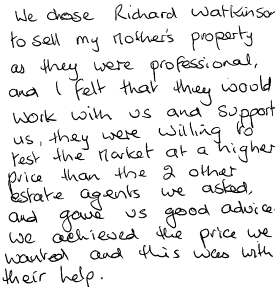 We chose Richard Watkinson
to sell my Mother's property
as they were professional,
and I felt that they would
work with us and support
us, they were willing to
test the market at a higher
price than the 2 other
estate agents we asked,
and gave us good advice.
We achieved the price we
wanted and this was with
their help.